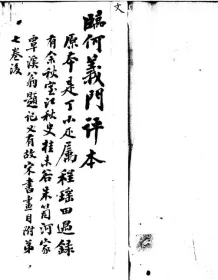 臨何義門評本
原本是丁小疋屬程瑶田過錄
有余秋室江秋史桂未谷朱笥河家
覃溪翁題記又有故宋書畫目附第
七卷後
文